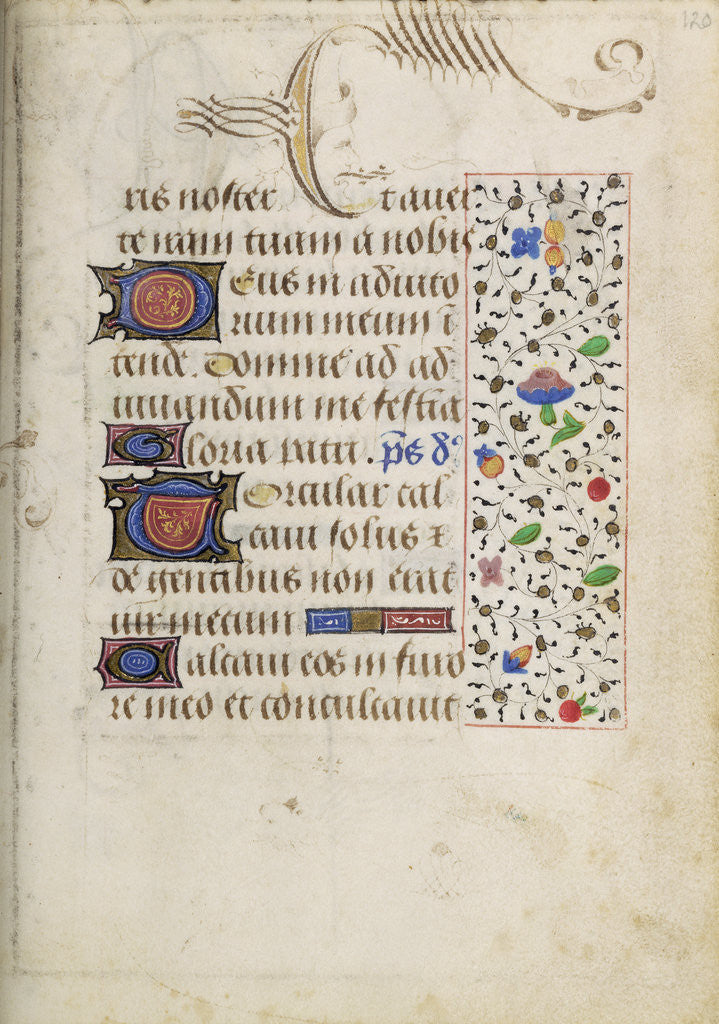 120
ris noster Et auer
te iram tuam a nobis
Deus in adiuto
rium meum ī
tende. Domine ad ad
iuuandum me festina
Gloria patri. ps dꝰ
Torcular cal
caui solus ⁊
de gentibus non erat
uir mecum
Calcaui eos in furo
re meo et conculcaui